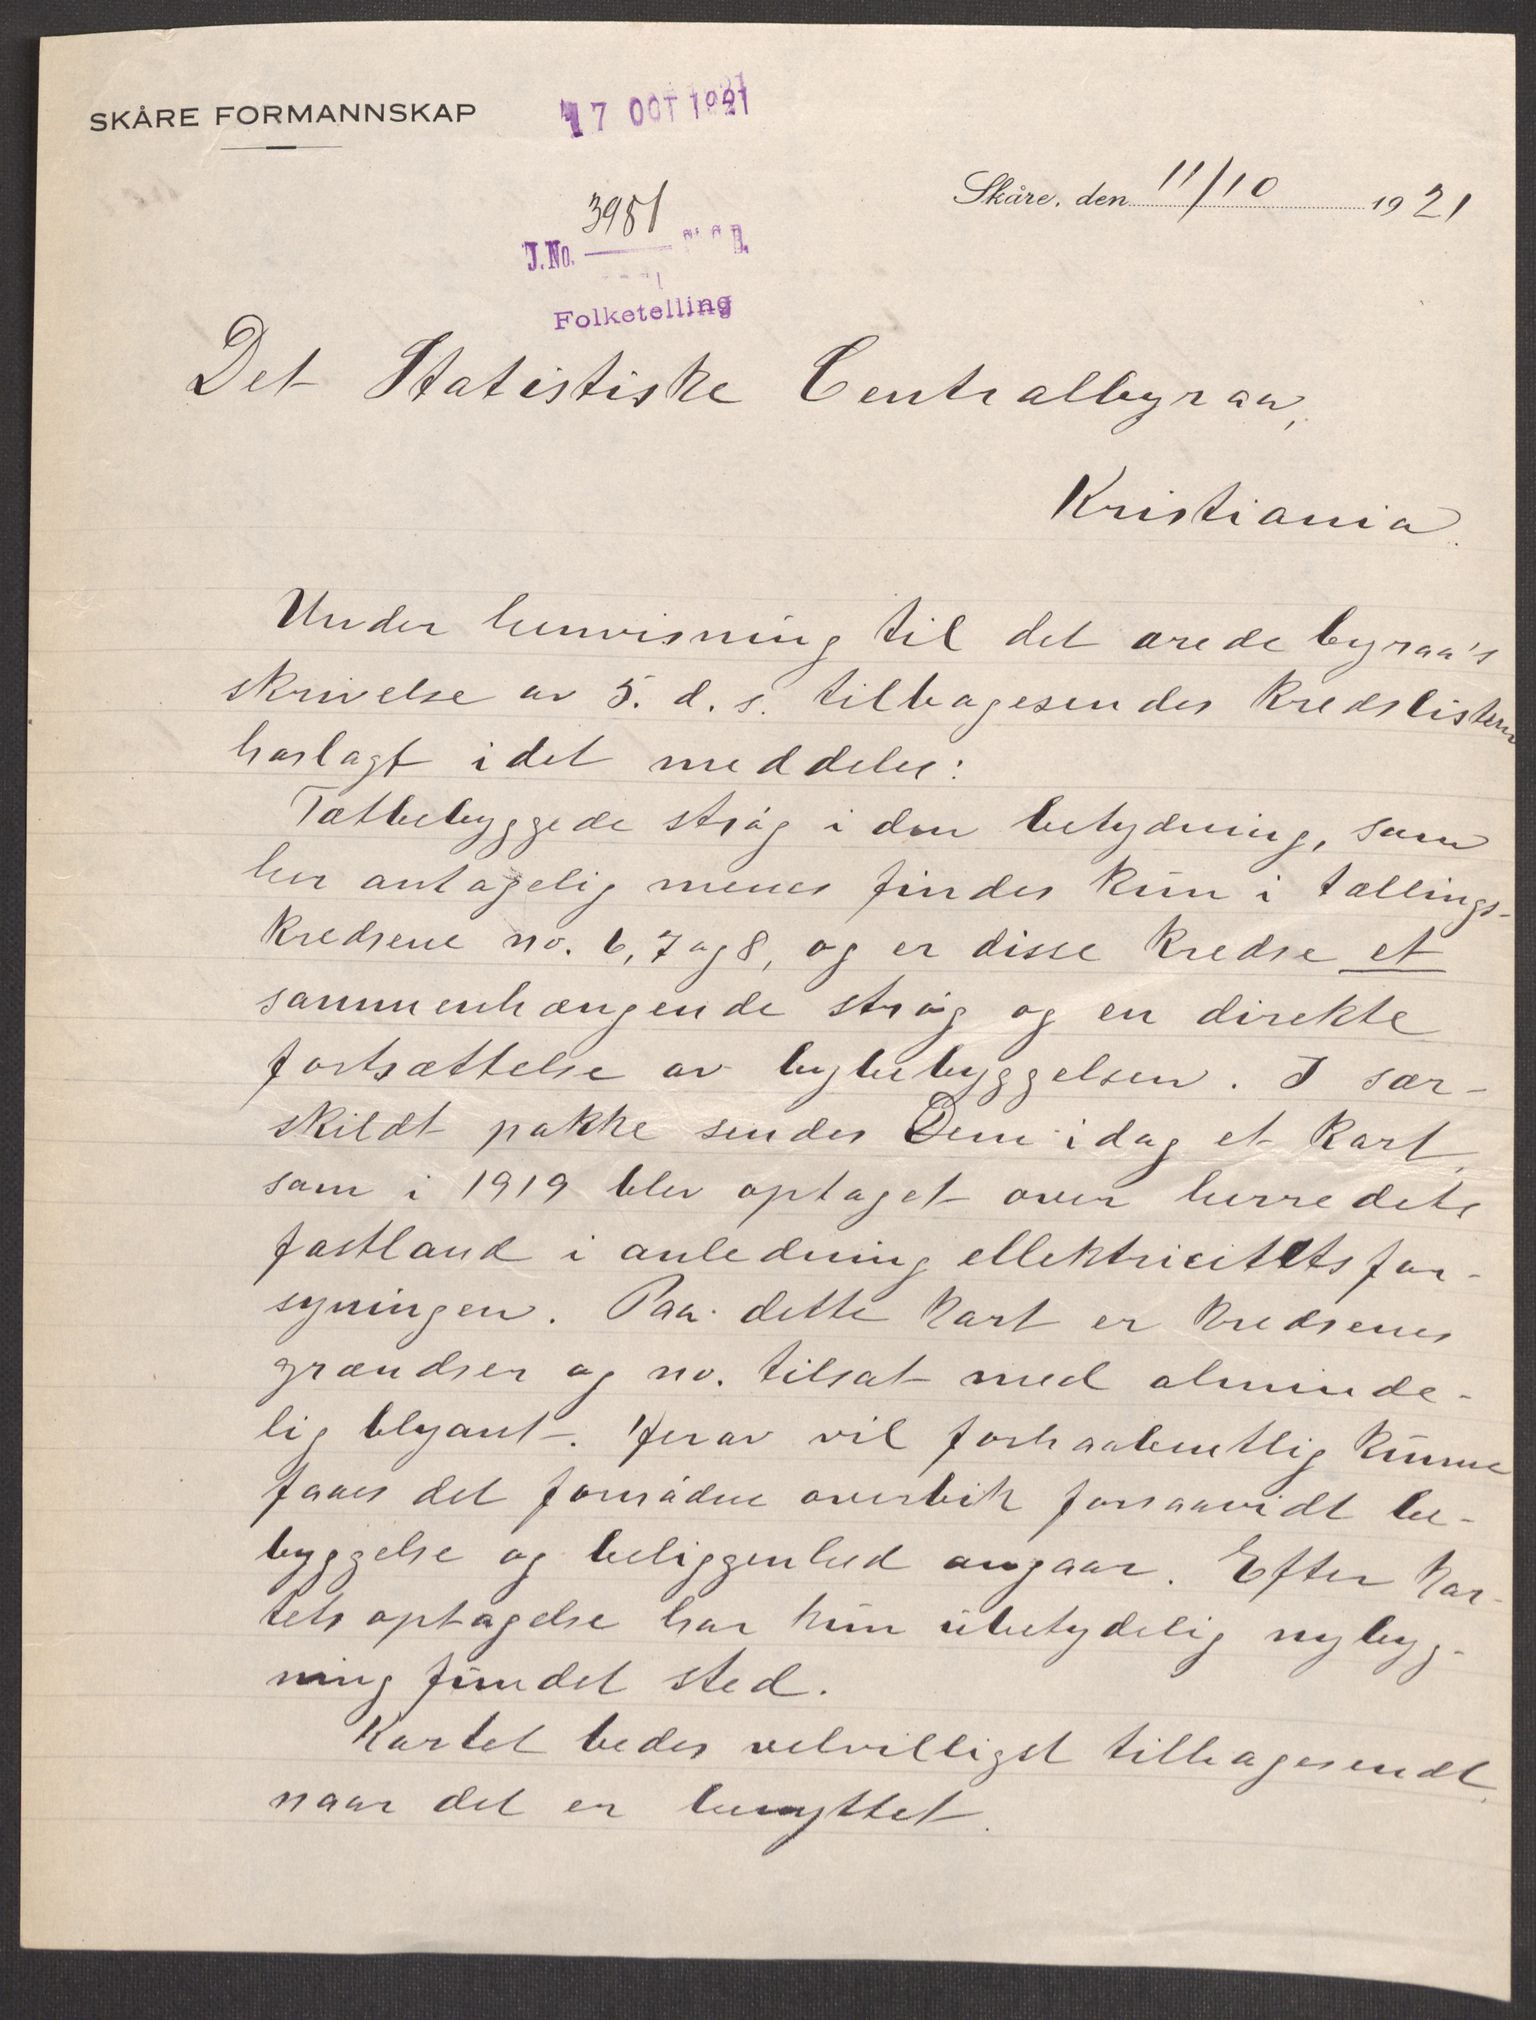 SKÅRE FORMANNSKAP
17 OCT 1921
Skåre, den 11/10 1921
3981
J.No.
Folketelling
Det Statistiske Centralbyraa,
Kristiania.
Under henvisning til det ærede byraa's
skrivelse av 5. d. s. tilbagesendes kredslisten
hoslagt idet meddeles:
Tætbebyggede strøg i den betydning, som
her antagelig menes findes kun i tællings-
kredsene no. 6, 7 og 8, og er disse kredse et
sammenhængende strøg og en direkte
fortsættelse av bybebyggelsen. I sær-
skildt pakke sendes Dem idag et kart
som i 1919 blev optaget over herredets
fastland i anledning ellektricitetsfor-
syningen. Paa dette kart er kredsenes
grændser og no. tilsat med alminde-
lig blyant. Herav vil forhaabentlig kunne
faaes det fornødne overblik forsaavidt be-
byggelse og beliggenhed angaar. Efter kar-
tets optagelse har kun ubetydelig nybyg-
ning fundet sted.
Kartet bedes velvilligst tilbagesendt
naar det er benyttet.